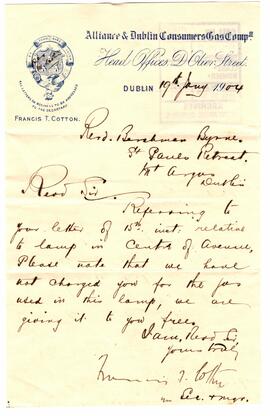 Alliance & Dublin Consumers Gas Compy
Head Offices, D'Olier Street.
DUBLIN 19th Jany 1904
ALL LETTERS ON BUSINESS TO BE ADDRESSED
TO THE SECRETARY.
FRANCIS T. COTTON.
Revd. Byrne.
St Pauls Retreat,
Mt Argus
Dublin
Revd Sir,
Referring to
your letter of 15th inst. relative
to lamp in Centre of Avenue,
Please note that we have
not charged you for the gas
used in this lamp, we are
giving it to you free.
I am, Revd Sir
yours truly
Francis T. Cotton
Sec. & Mgr.